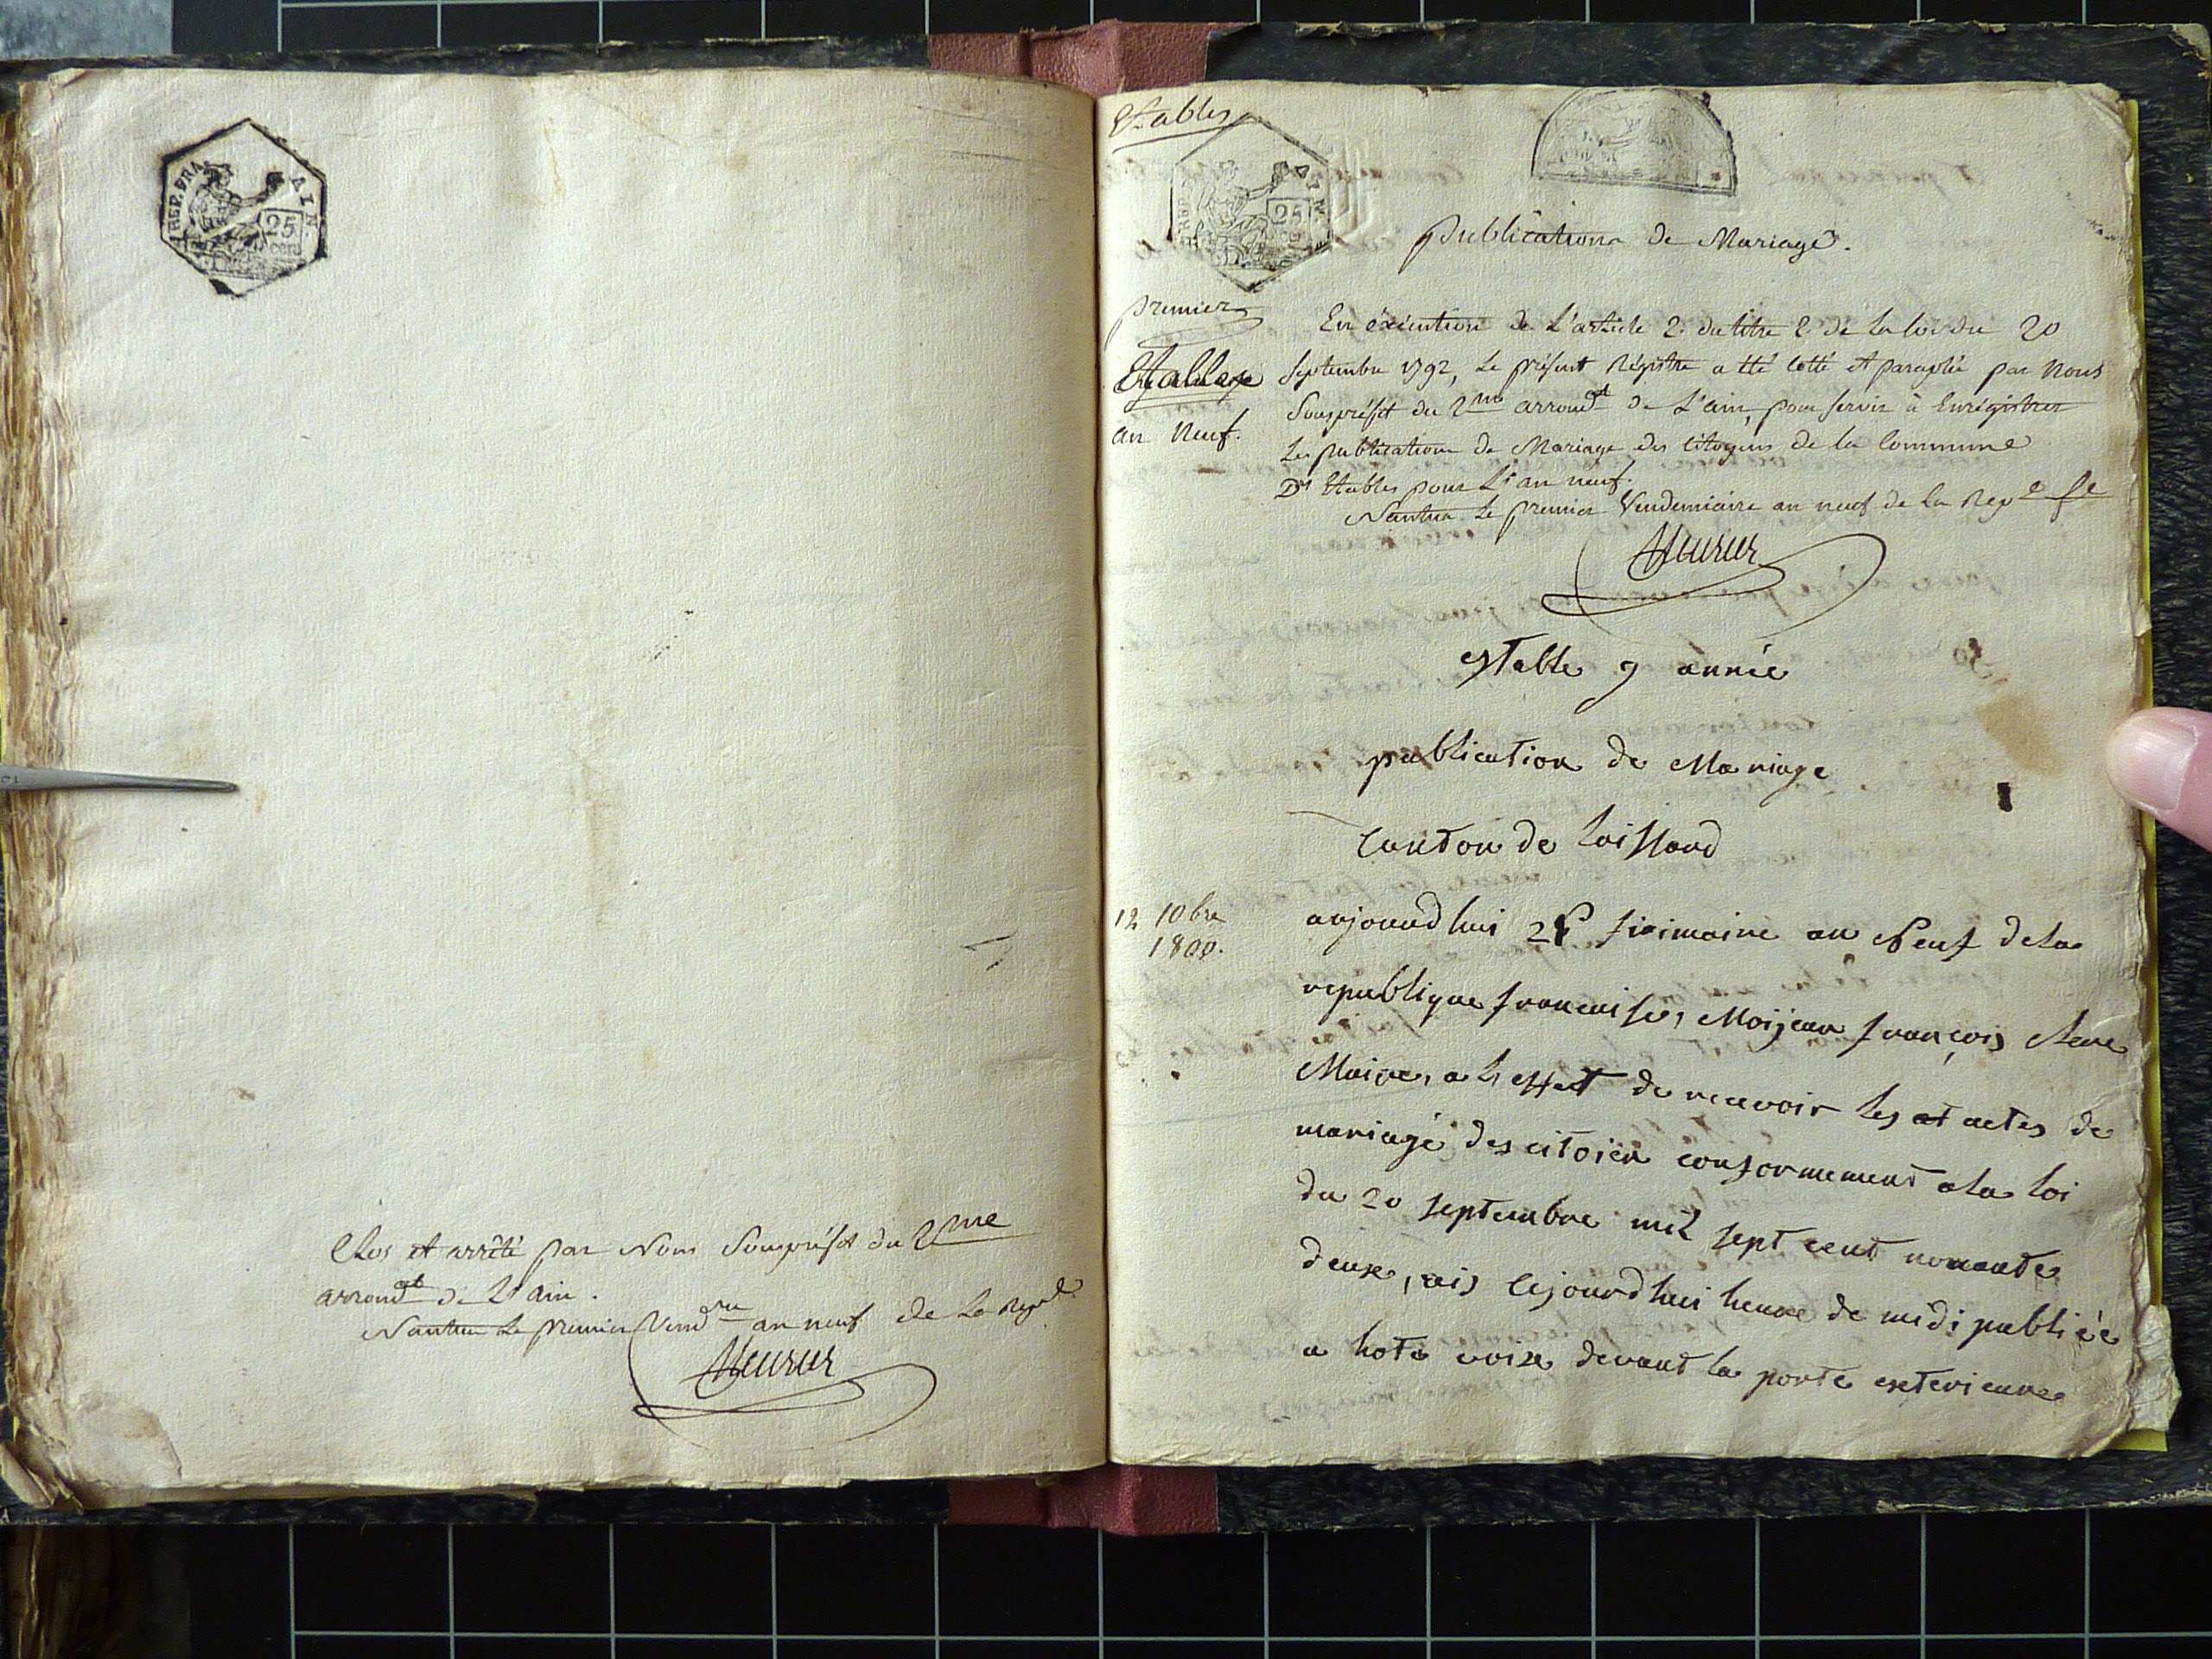 REP. FRA
AIN.
25
cen
Clos et arrêté par Nous Souspréfet du 2me
arrondt de L'ain.
Nantua Le premier Vendre an neuf de La Repe
Etables
REP.
AIN.
25
publications de Mariage.
premier
Etables
an neuf.
En éxécution de L'article 2. du titre 2 de la loi du 20
Septembre 1792, Le présent Régistre a été cotté et paraphé par Nous
Souspréfet du 2me arrondt de L'ain, pour servir à Enrégistrer
Les publications de Mariage des Citoyens de la Commune
D'Etables pour L'an neuf.
Nantua Le premier Vendemiaire an neuf de la Repe fe
estable 9 année
publication de Mariage
canton de
12 10bre
1800.
aujourdhui frimaire an Neuf de la
republique francaise, Moi jean françois
Maire, a l'effect de recevoir les et actes de
mariage des citoien conformement a la loi
du 20 septembre mil sept cent nonante
deux, ais cejourdhui heure de midi publiée
a hote voixe devant la porte exterieure